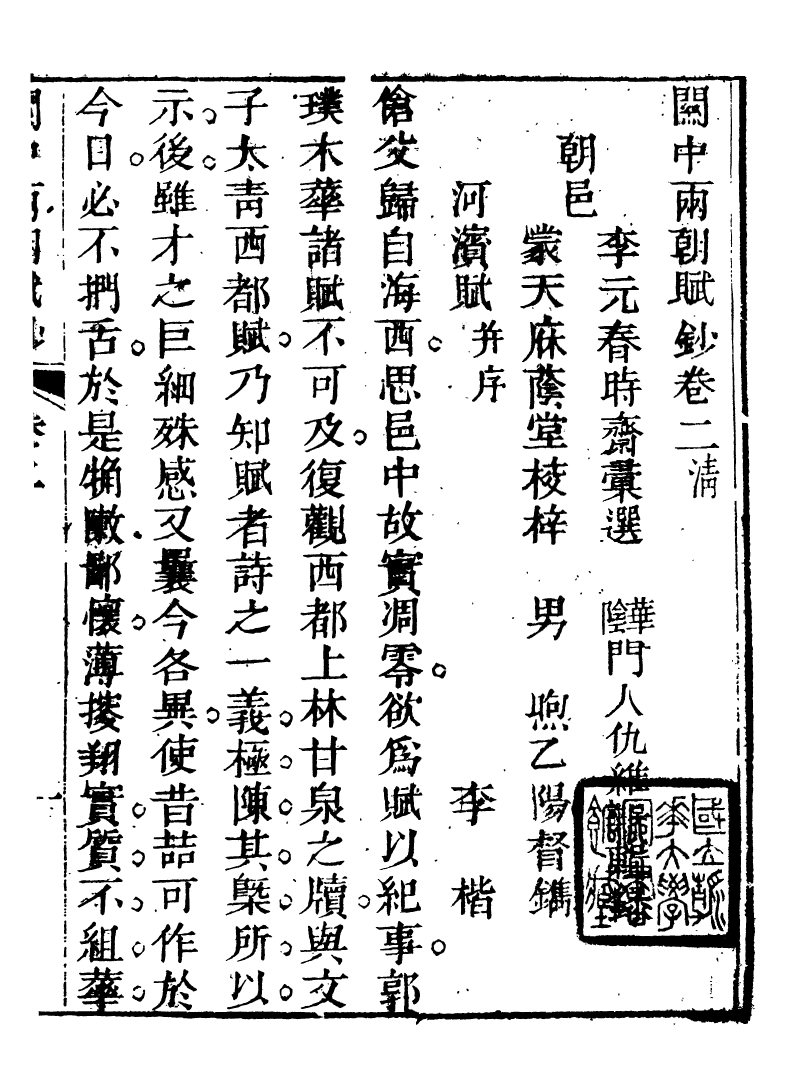 關中兩朝賦鈔卷二 清
朝邑
李元春時齋彙選 華陰門人仇維
蒙天庥蔭堂校梓 男 煦乙陽督鐫
河濱賦 并序 李楷
傖父歸自海西思邑中故實凋零欲爲賦以紀事郭
璞木華諸賦不可及復觀西都上林甘泉之牘與文
子太青西都賦乃知賦者詩之一義極陳其槩所以
示後雖才之巨細殊感又曩今各異使昔喆可作於
今日必不捫舌於是觕 鄙懷薄 翔實質不組華
國立 大學